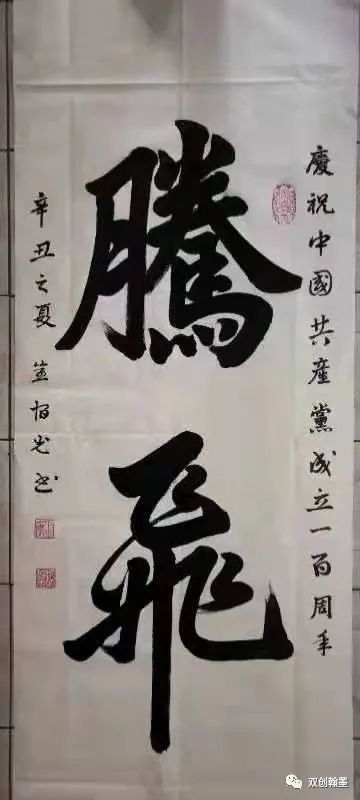 慶祝中國共產黨成立一百周年
騰飛
辛丑之夏
双创翰墨